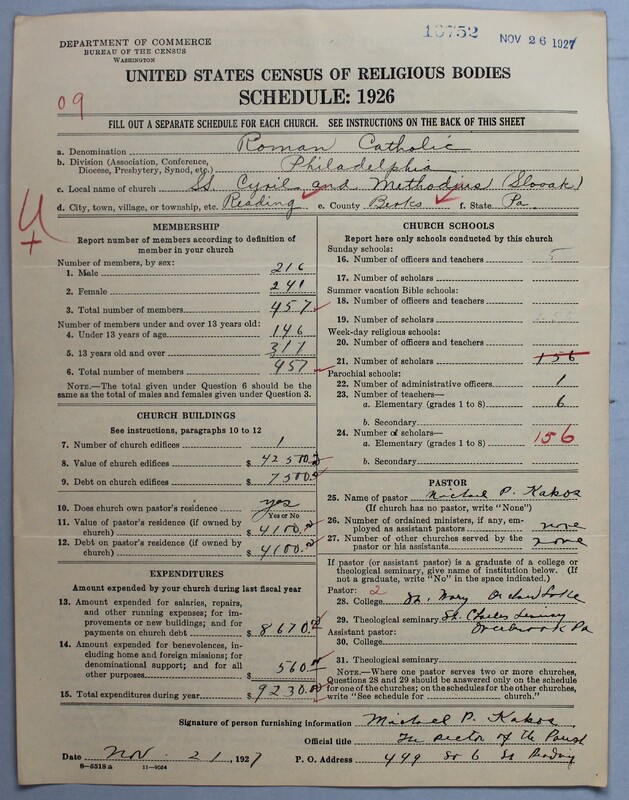 DEPARTMENT OF COMMERCE
BUREAU OF THE CENSUS
WASHINGTON
10752
NOV 26 1927
UNITED STATES CENSUS OF RELIGIOUS BODIES
SCHEDULE: 1926
09
FILL OUT A SEPARATE SCHEDULE FOR EACH CHURCH. SEE INSTRUCTIONS ON THE BACK OF THIS SHEET
a. Denomination Roman Catholic
b. Division (Association, Conference, Diocese, Presbytery, Synod, etc.) Philadelphia
c. Local name of church SS. Cyril and Methodius (Slovak)
d. City, town, village, or township, etc. Reading e. County Berks f. State Pa.
MEMBERSHIP
Report number of members according to definition of
member in your church
Number of members, by sex:
1. Male 216
2. Female 241
3. Total number of members 457
Number of members under and over 13 years old:
4. Under 13 years of age 146
5. 13 years old and over 311
6. Total number of members 457
NOTE.—The total given under Question 6 should be
the same as the total of males and females given under Question 3.
CHURCH BUILDINGS
See instructions, paragraphs 10 to 12
7. Number of church edifices 1
8. Value of church edifices $ 42500.
9. Debt on church edifices $ 7500.
10. Does church own pastor's residence yes
Yes or No
11. Value of pastor's residence (if owned by
church) $ 4100.
12. Debt on pastor's residence (if owned by
church) $ 4100.
EXPENDITURES
Amount expended by your church during last fiscal year
13. Amount expended for salaries, repairs,
and other running expenses; for im-
provements or new buildings; and for
payments on church debt $ 8670.
14. Amount expended for benevolences,
including home and foreign missions; for
denominational support; and for all
other purposes $ 560.
15. Total expenditures during year $ 9230.
CHURCH SCHOOLS
Report here only schools conducted by this church
Sunday schools:
16. Number of officers and teachers
17. Number of scholars
Summer vacation Bible schools:
18. Number of officers and teachers
19. Number of scholars
Week-day religious schools:
20. Number of officers and teachers
21. Number of scholars 156
Parochial schools:
22. Number of administrative officers 1
23. Number of teachers—
a. Elementary (grades 1 to 8) 6
b. Secondary
24. Number of scholars—
a. Elementary (grades 1 to 8) 156
b. Secondary
PASTOR
25. Name of pastor Michael P. Kakos
(If church has no pastor, write "None")
26. Number of ordained ministers, if any, em-
ployed as assistant pastors none
27. Number of other churches served by the
pastor or his assistants none
If pastor (or assistant pastor) is a graduate of a college or
theological seminary, give name of institution below. (If
not a graduate, write "No" in the space indicated.)
Pastor: 2
28. College St. Mary Orchard Lake
29. Theological seminary St. Charles Seminary
Overbrook Pa
Assistant pastor:
30. College
31. Theological seminary
NOTE.—Where one pastor serves two or more churches,
Questions 28 and 29 should be answered only on the schedule
for one of the churches; on the schedules for the other churches,
write "See schedule for church."
Signature of person furnishing information Michael P. Kakos
Official title The Rector of the Parish
Date Nov. 21, 1927 P. O. Address 449 So 6 St Reading
8—5518a 11—9034